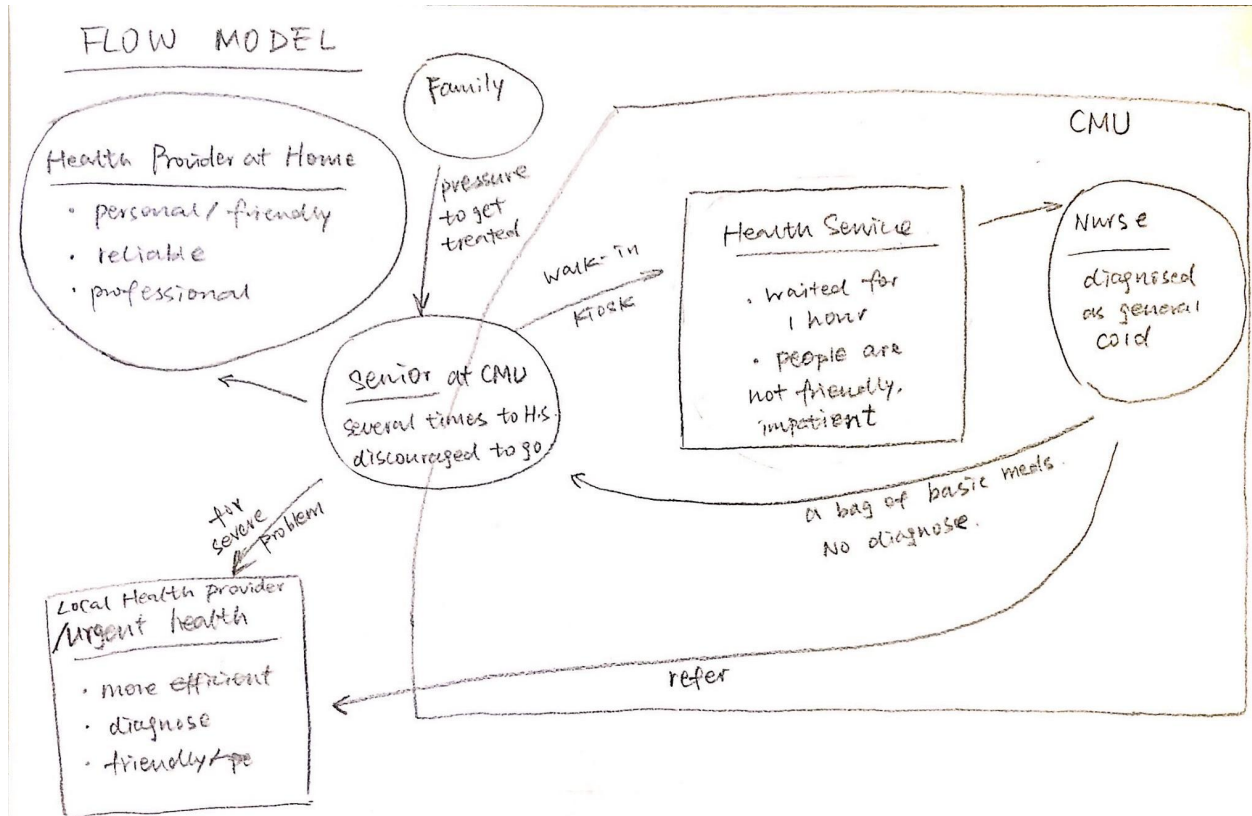 FLOW MODEL
Family
Health Provider at Home
• personal/friendly
• reliable
• professional
pressure
to get
treated
CMU
walk-in
kiosk
Health Service
• waited for
1 hour
• people are
not friendly,
impatient
Nurse
diagnosed
as general
cold
Senior at CMU
several times to H.S.
discouraged to go
a bag of basic meds.
No diagnose.
for
severe
problem
Local Health provider
/urgent health
• more efficient
• diagnose
• friendly
refer